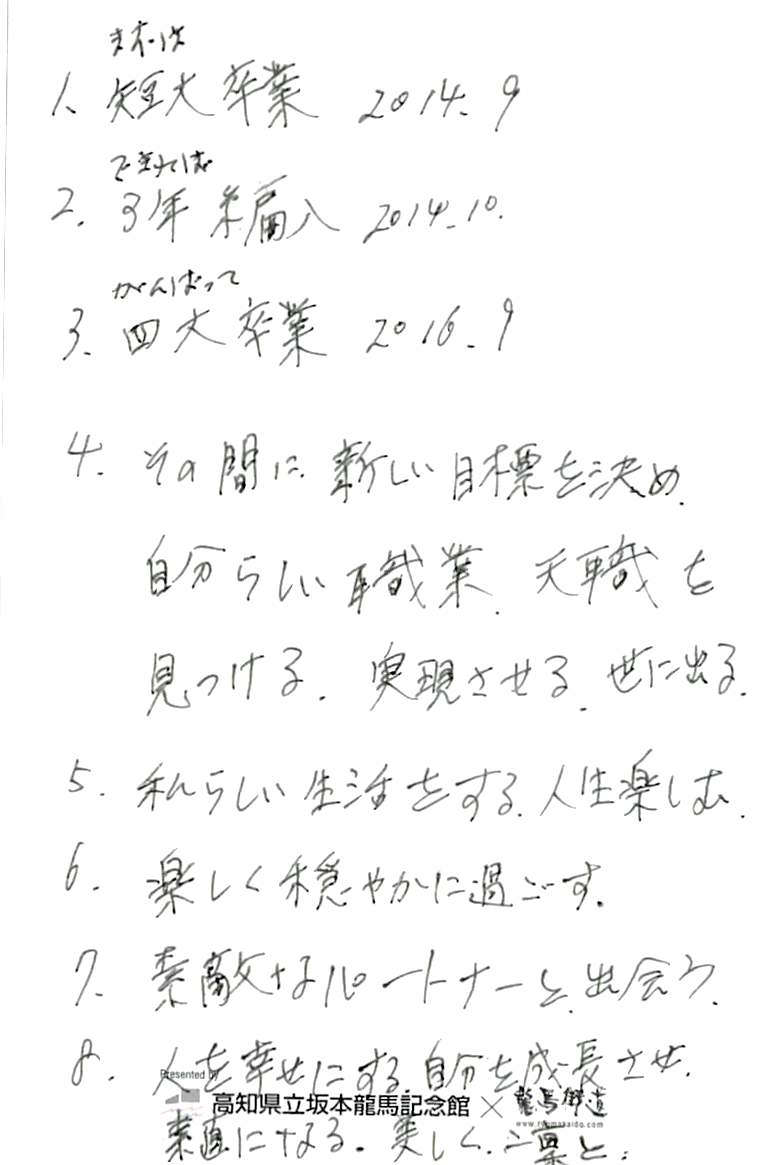 まずは
1. 短大卒業 2014. 9
できれば
2. 3年編入 2014. 10.
がんばって
3. 四大卒業 2016. 9
4. その間に新しい目標を決め.
自分らしい職業. 天職を
見つける. 実現させる. 世に出る.
5. 私らしい生活をする. 人生楽しむ.
6. 楽しく穏やかに過ごす.
7. 素敵なパートナーと. 出会う.
8. 人を幸せにする. 自分を成長させ.
Presented by
高知県立坂本龍馬記念館 × 龍馬街道
www.ryomakaido.com
素直になる. 美しく. 凛と.